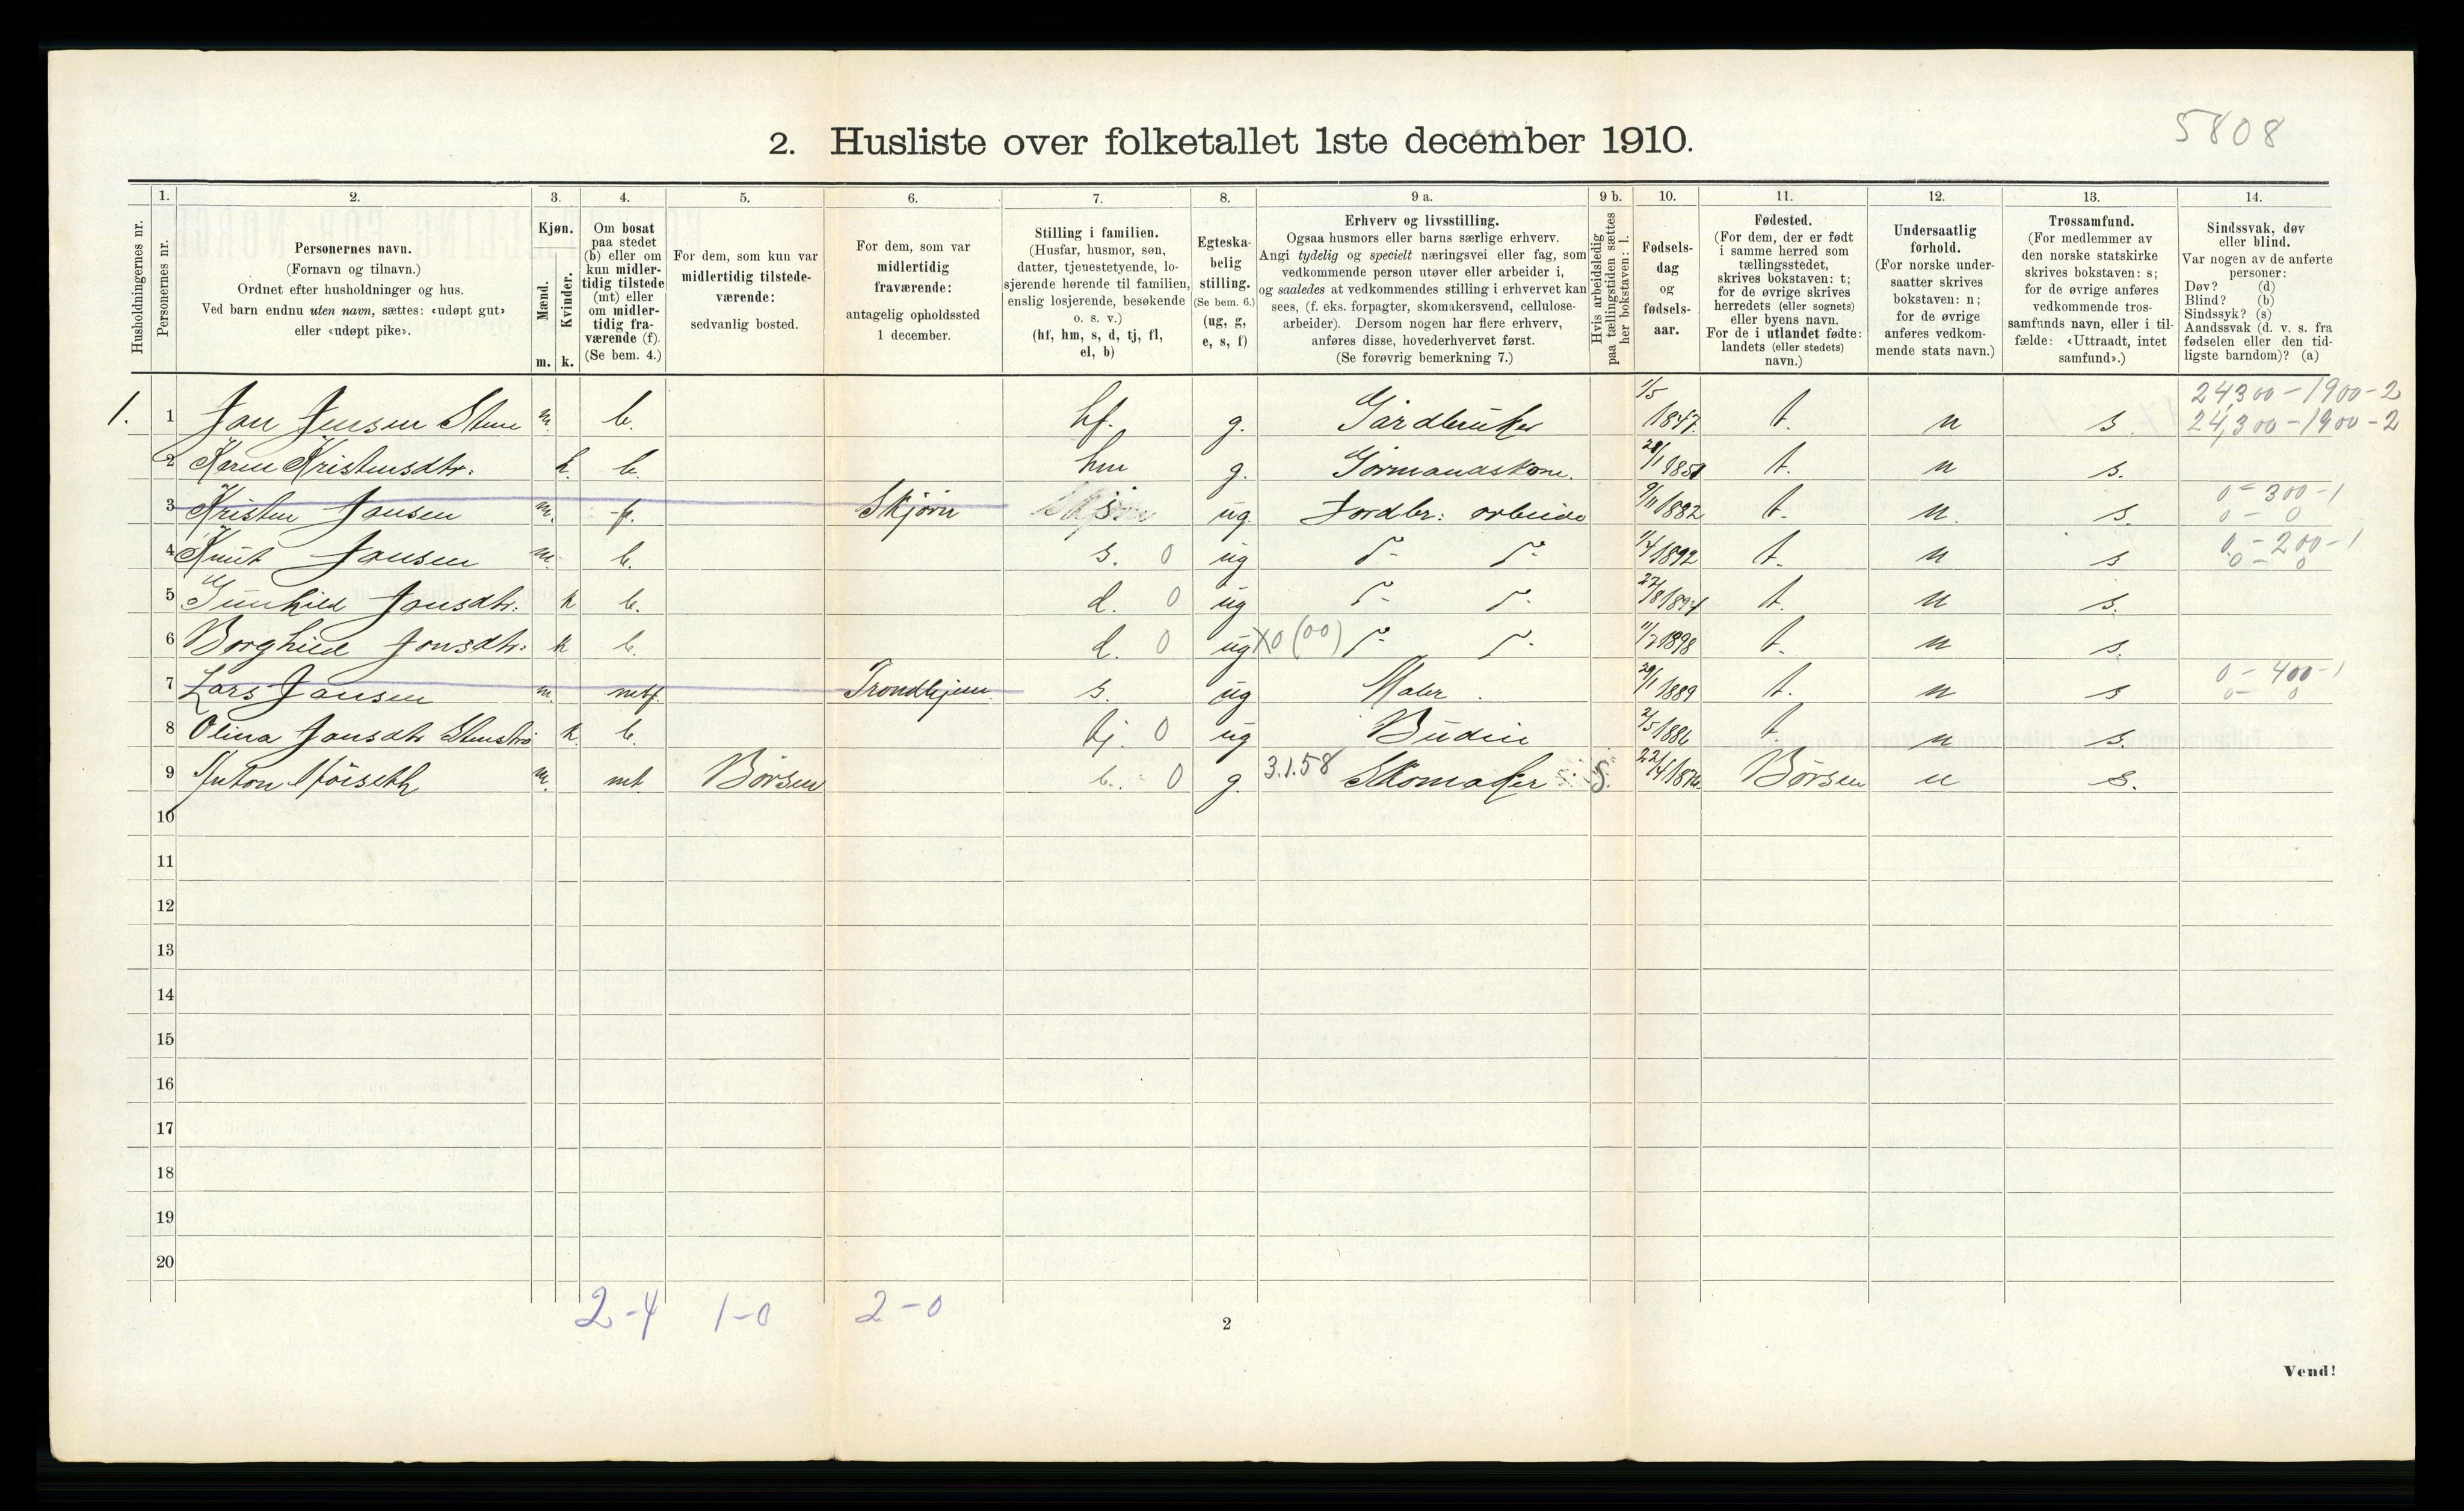 5808
2. Husliste over folketallet 1ste december 1910.
1. 2. 3. 4. 5. 6. 7. 8. 9 a. 9 b. 10. 11. 12. 13. 14.
Husholdningernes nr.
Personernes nr.
Personernes navn.
(Fornavn og tilnavn.)
Ordnet efter husholdninger og hus.
Ved barn endnu uten navn, sættes: «udøpt gut»
eller «udøpt pike».
Kjøn.
Mænd.
Kvinder.
m. k.
Om bosat
paa stedet
(b) eller om
kun midler-
tidig tilstede
(mt) eller
om midler-
tidig fra-
værende (f).
(Se bem. 4.)
For dem, som kun var
midlertidig tilstede-
værende:
sedvanlig bosted.
For dem, som var
midlertidig
fraværende:
antagelig opholdssted
1 december.
Stilling i familien.
(Husfar, husmor, søn,
datter, tjenestetyende, lo-
sjerende hørende til familien,
enslig losjerende, besøkende
o. s. v.)
(hf, hm, s, d, tj, fl,
el, b)
Egteska-
belig
stilling.
(Se bem. 6.)
(ug, g,
e, s, f)
Erhverv og livsstilling.
Ogsaa husmors eller barns særlige erhverv.
Angi tydelig og specielt næringsvei eller fag, som
vedkommende person utøver eller arbeider i,
og saaledes at vedkommendes stilling i erhvervet kan
sees, (f. eks. forpagter, skomakersvend, cellulose-
arbeider). Dersom nogen har flere erhverv,
anføres disse, hovederhvervet først.
(Se forøvrig bemerkning 7.)
Hvis arbeidsledig
paa tællingstiden sættes
her bokstaven: l.
Fødsels-
dag
og
fødsels-
aar.
Fødested.
(For dem, der er født
i samme herred som
tællingsstedet,
skrives bokstaven: t;
for de øvrige skrives
herredets (eller sognets)
eller byens navn.
For de i utlandet fødte:
landets (eller stedets)
navn.)
Undersaatlig
forhold.
(For norske under-
saatter skrives
bokstaven: n;
for de øvrige
anføres vedkom-
mende stats navn.)
Trossamfund.
(For medlemmer av
den norske statskirke
skrives bokstaven: s;
for de øvrige anføres
vedkommende tros-
samfunds navn, eller i til-
fælde: «Uttraadt, intet
samfund».)
Sindssvak, døv
eller blind.
Var nogen av de anførte
personer:
Døv? (d)
Blind? (b)
Sindssyk? (s)
Aandssvak (d. v. s. fra
fødselen eller den tid-
ligste barndom)? (a)
24,300-1900-2
1. 1 Jon Jensen m. b. hf. g. Gardbruker 1/5 1847. t. n s. 24,300-1900-2
2 Karen Kristensdtr. k. b. hm g. Gårmandskone. t. n s.
0-300-1
3 Kristen Jonsen m. f. Skjørn s. ug. Jordbr: arbeide 9/11 1882 t. n. s. 0-0
0-200-1
4 Knut Jonsen m. b. s. 0 ug 1892 t. n s 0-0
5 Gunhild Jonsdtr. k b. d. 0 ug 27/8 1894 t. n s.
6 Borghild Jonsdtr. k b. d. 0 ug X0(00) 11/7 1898 t. n s.
0-400-1
7 Lars Jonsen m. Trondhjem s. ug Maler. 29/1 1889 t. n s 0-0
8 Olina Jonsdtr k. b. tj. 0 ug Budeie 2/5 1886 t. n s.
9 Anton m. mt. Børsen b. 0 g. 3.1.58 Skomaker S. Børsen n s.
10
11
12
13
14
15
16
17
18
19
20
2-4 1-0 2-0
2
Vend!